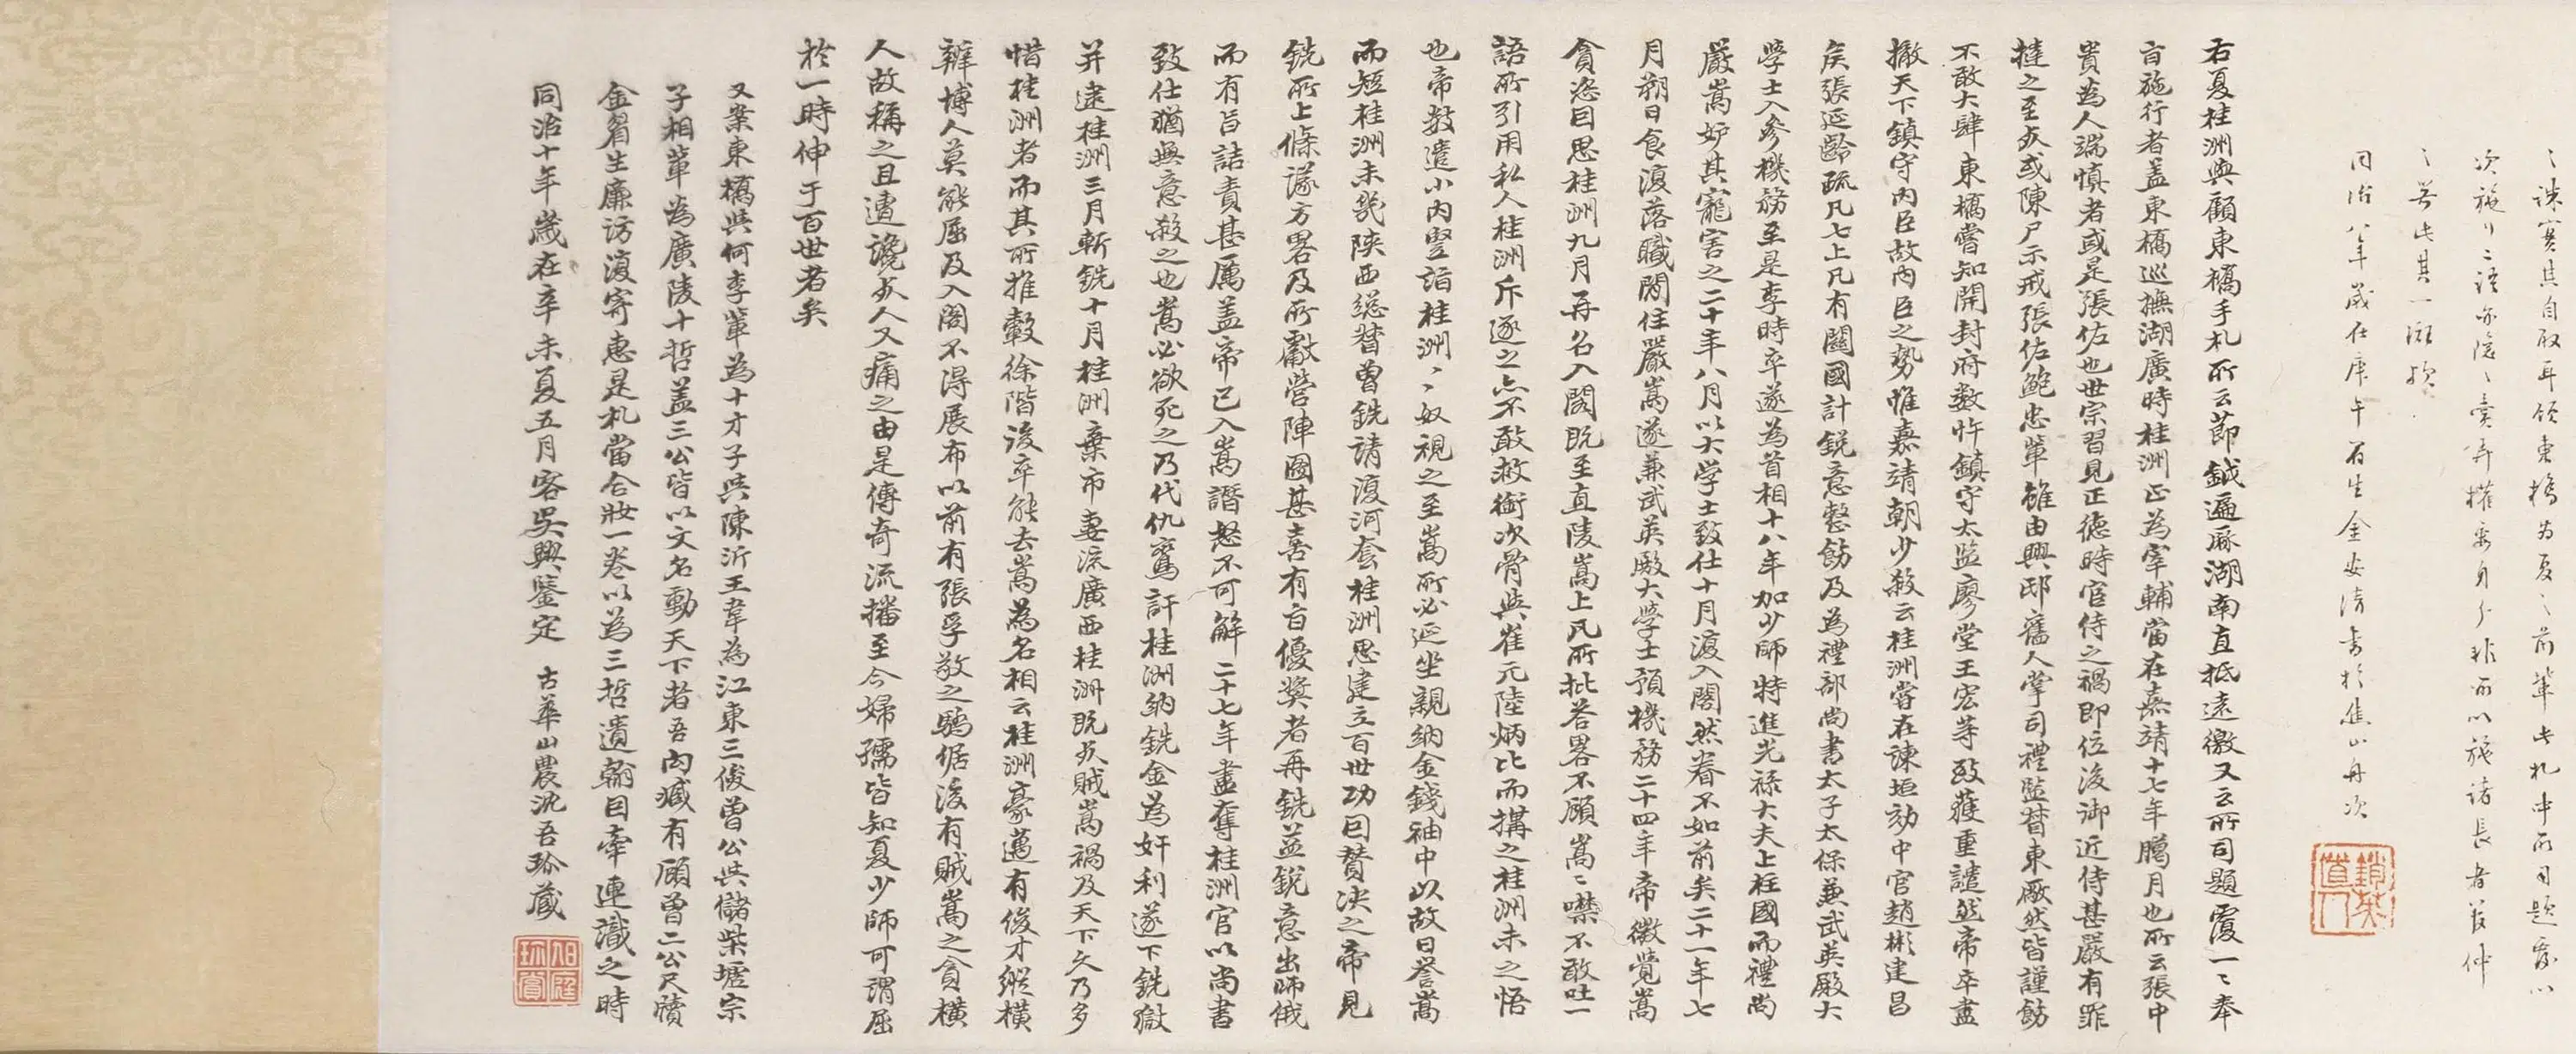 誅實其自取耳顧東橋為夏之前輩此札中所司題覆以
次施行之語亦隱
若此其一斑歟
同治八年歲在庚午眉生金安清書於焦山舟次
右夏桂洲與顧東橋手札所云節鉞遍歷湖南直抵遠徼又云所司題覆一〻奉
旨施行者蓋東橋巡撫湖廣時桂洲正為宰輔當在嘉靖十七年臘月也所云張中
貴為人端慎者或是張佐也世宗習見正德時宦侍之禍即位後御近侍甚嚴有罪
撻之至死或陳尸示戒張佐鮑忠輩雖由興邸舊人掌司禮監督東廠然皆謹飭
不敢大肆東橋嘗知開封府數忤鎮守太監廖堂王宏等致獲重譴然帝卒盡
撤天下鎮守內臣故內臣之勢惟嘉靖朝少殺云桂洲嘗在諫垣劾中官趙彬建昌
矦張延齡疏凡七上凡有關國計銳意整飭及為禮部尚書太子太保兼武英殿大
學士入參機務至是李時卒遂為首相十八年加少師特進光祿大夫上柱國而禮尚
嚴嵩妒其寵害之二十年八月以大学士致仕十月復入閣然眷不如前矣二十一年七
月朔日食復落職閒住嚴嵩遂兼武英殿大學士預機務二十四年帝微覺嵩
貪恣因思桂洲九月再召入閣既至直陵嵩上凡所批荅畧不顧嵩〻噤不敢吐一
語所引用私人桂洲斥逐之亦不敢救銜次骨與崔元陸炳比而搆之桂洲未之悟
也帝數遣小內豎詣桂洲〻奴視之至嵩所必延坐親納金錢袖中以故日譽嵩
而短桂洲未幾陝西総督曾銑請復河套桂洲思建立百世功因贊決之帝見
銑所上條議方畧及所獻營陣圖甚喜有旨優獎者再銑益銳意出師俄
而有旨詰責甚厲蓋帝已入嵩譖怒不可解二十七年盡奪桂洲官以尚書
致仕猶無意殺之也嵩必欲死之乃代仇鸞訐桂洲納銑金為奸利遂下銑獄
并逮桂洲三月斬銑十月桂洲棄市妻流廣西桂洲既死賊嵩禍及天下久乃多
惜桂洲者而其所推轂徐階後卒能去嵩為名相云桂洲豪邁有俊才縱橫
辯博人莫能屈及入閣不得展布以前有張孚敬之驕倨後有賊嵩之貪橫
人故稱之且遭讒死人又痛之由是傳奇流播至今婦孺皆知夏少師可謂屈
於一時伸于百世者矣
又案東橋與何李輩為十才子與陳沂王韋為江東三俊曾公與儲柴墟宗
子相輩為廣陵十哲蓋三公皆以文名動天下者吾內臧有顧曾二公尺牘
金眉生廉訪復寄惠是札當合妝一卷以為三哲遺翰因牽連識之時
同治十年歲在辛未夏五月客吳興鑒定 古華山農沈吾珍藏